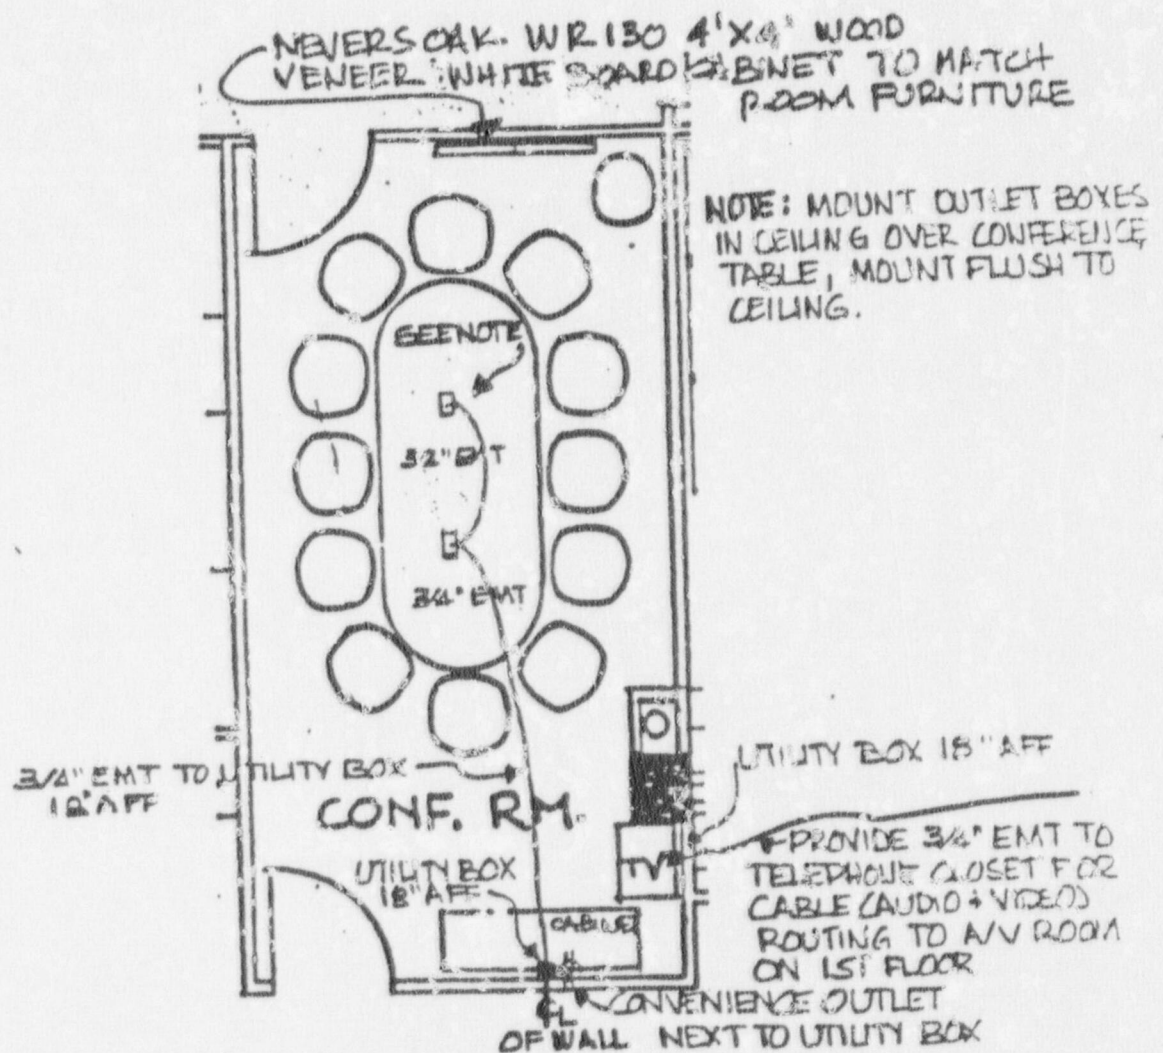 NEVERS OAK. WR130 4'X4' WOOD
VENEER WHITE BOARD CABINET TO MATCH
ROOM FURNITURE
NOTE: MOUNT OUTLET BOXES
IN CEILING OVER CONFERENCE
TABLE, MOUNT FLUSH TO
CEILING.
SEE NOTE
EMT
3/4" EMT
3/4" EMT TO UTILITY BOX
18" AFF
CONF. RM.
UTILITY BOX 18" AFF
TV
PROVIDE 3/4" EMT TO
TELEPHONE CLOSET FOR
CABLE (AUDIO + VIDEO)
ROUTING TO A/V ROOM
ON 1ST FLOOR
UTILITY BOX
18" AFF
CABINET
CONVENIENCE OUTLET
NEXT TO UTILITY BOX
CL
OF WALL